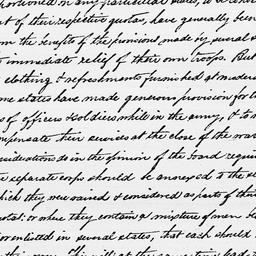 in any particular states, to be consi
t of their respective quotas, have generally been
m the benefits of the provisions made by several
immediate relief of their own troops. But
clothing & refreshments furnished at modera
me states have made generous provision for t
s of officers & soldiers while in the army, & to
mpensate their services at the close of the war
nsiderations do in the opinion of the board requir
e separate corps should be annexed to the
hich they were raised & considered as parts of th
otas: or where they contain a mixture of men
or enlisted in several states, that each should